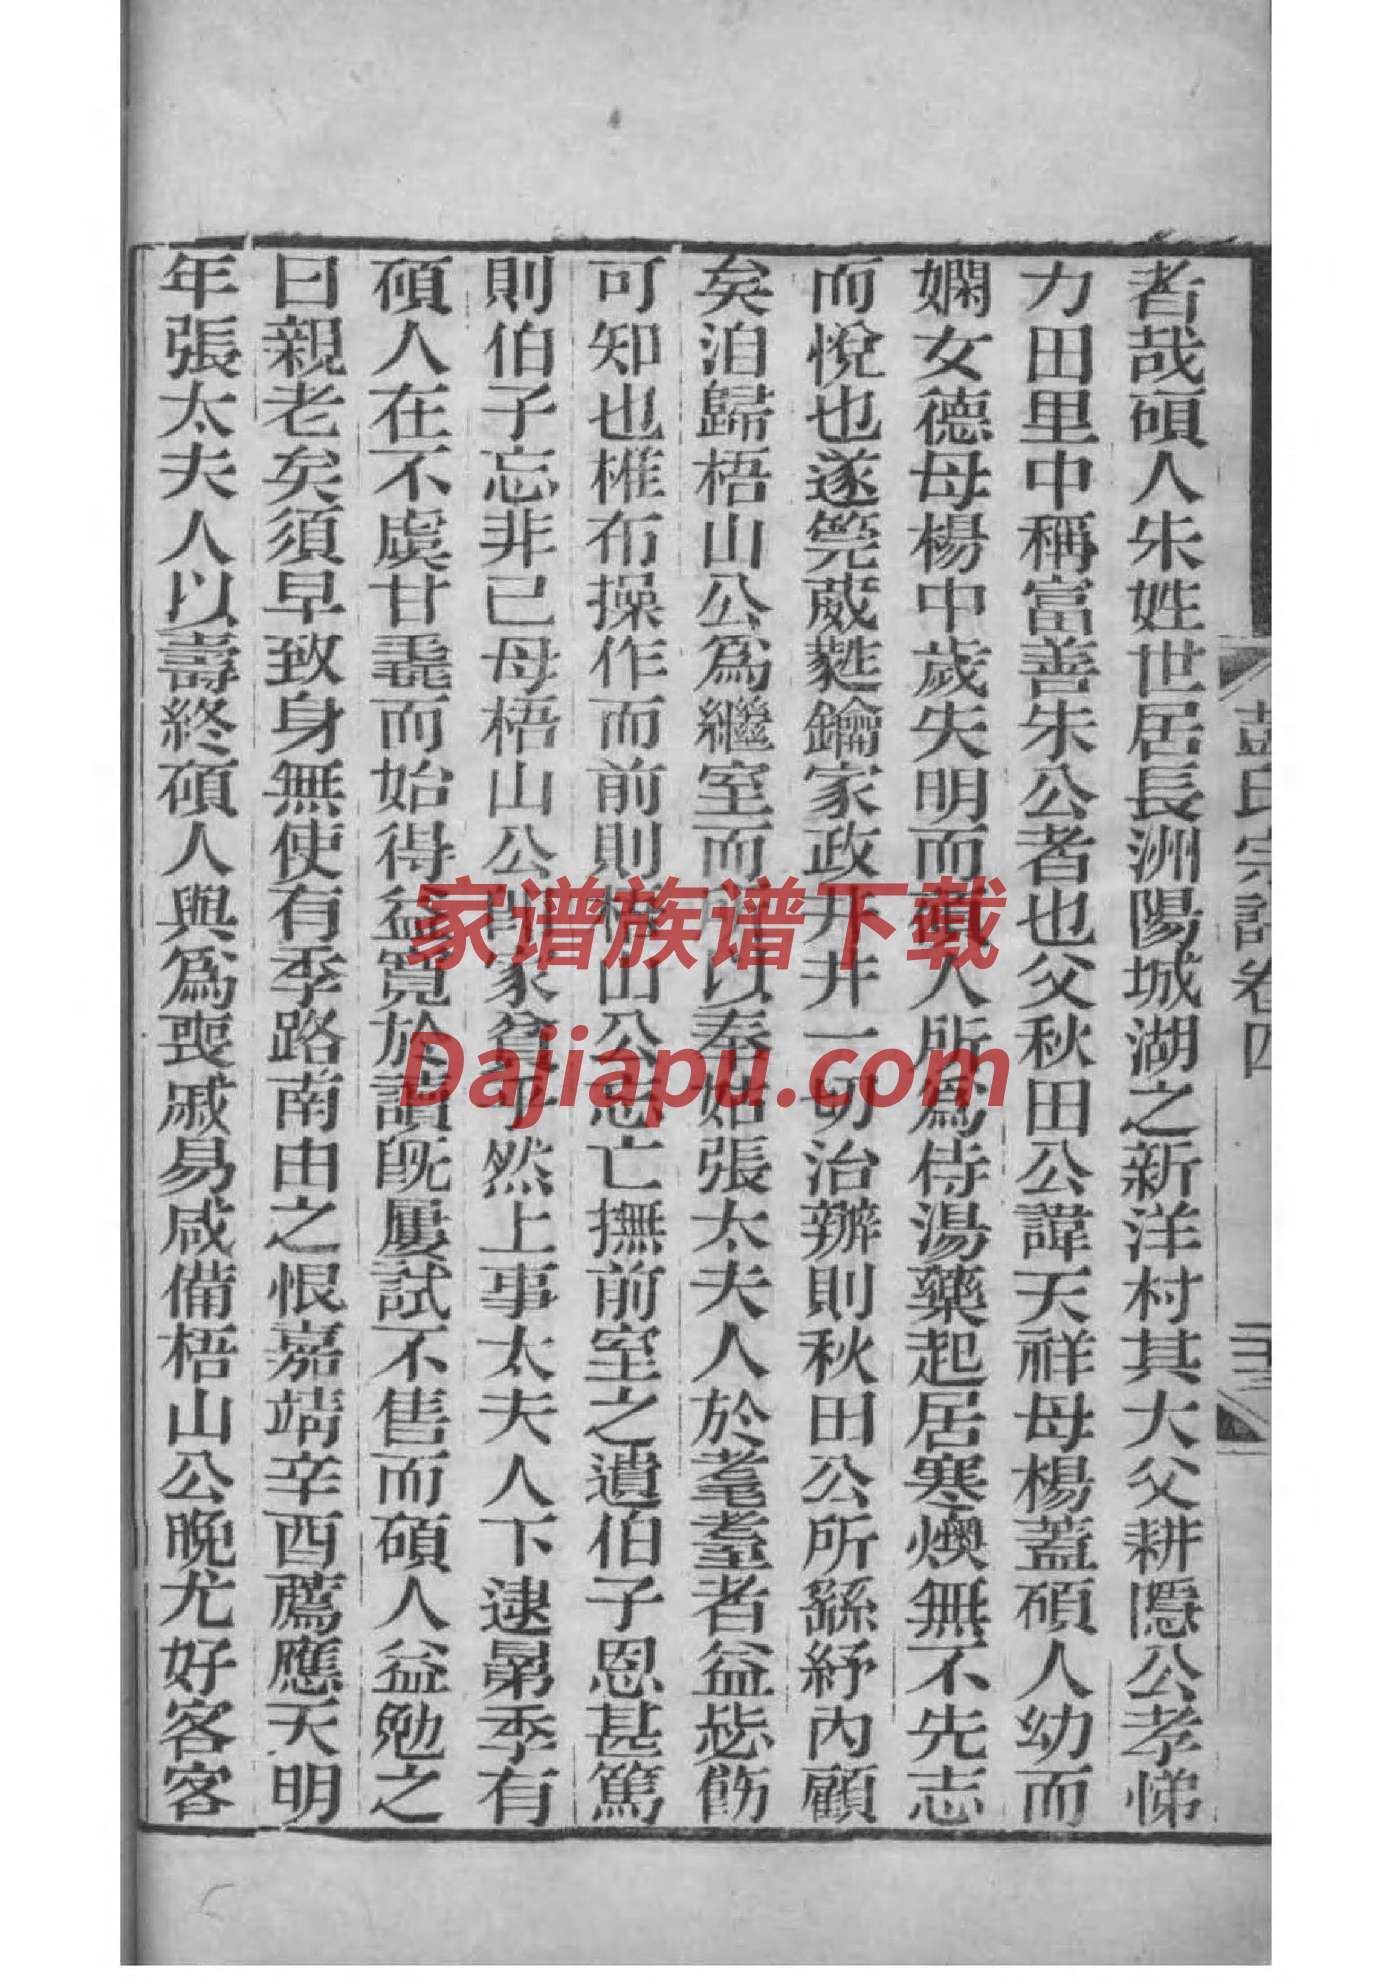 者哉碩人朱姓世居長洲陽城湖之新洋村其大父耕隱公孝悌
力田里中稱富善朱公者也父秋田公諱天祥母楊蓋碩人幼而
嫻女德母楊中歲失明而碩人所爲侍湯藥起居寒燠無不先志
而悅也遂筦葳蕤鑰家政井井一切治辦則秋田公所繇紓內顧
矣洎歸梧山公爲繼室而所以奉姑張太夫人於耄耋者益毖飭
可知也椎布操作而前則梧山公忘亡撫前室之遺伯子恩甚篤
則伯子忘非己母梧山公問家貧乎然上事太夫人下逮㬎季有
碩人在不虞甘毳而始得益寬於讀旣屢試不售而碩人益勉之
曰親老矣須早致身無使有季路南由之恨嘉靖辛酉薦應天明
年張太夫人以壽終碩人與爲喪戚易咸備梧山公晚尤好客客
彭氏宗譜卷四
家谱族谱下载
Dajiapu.com